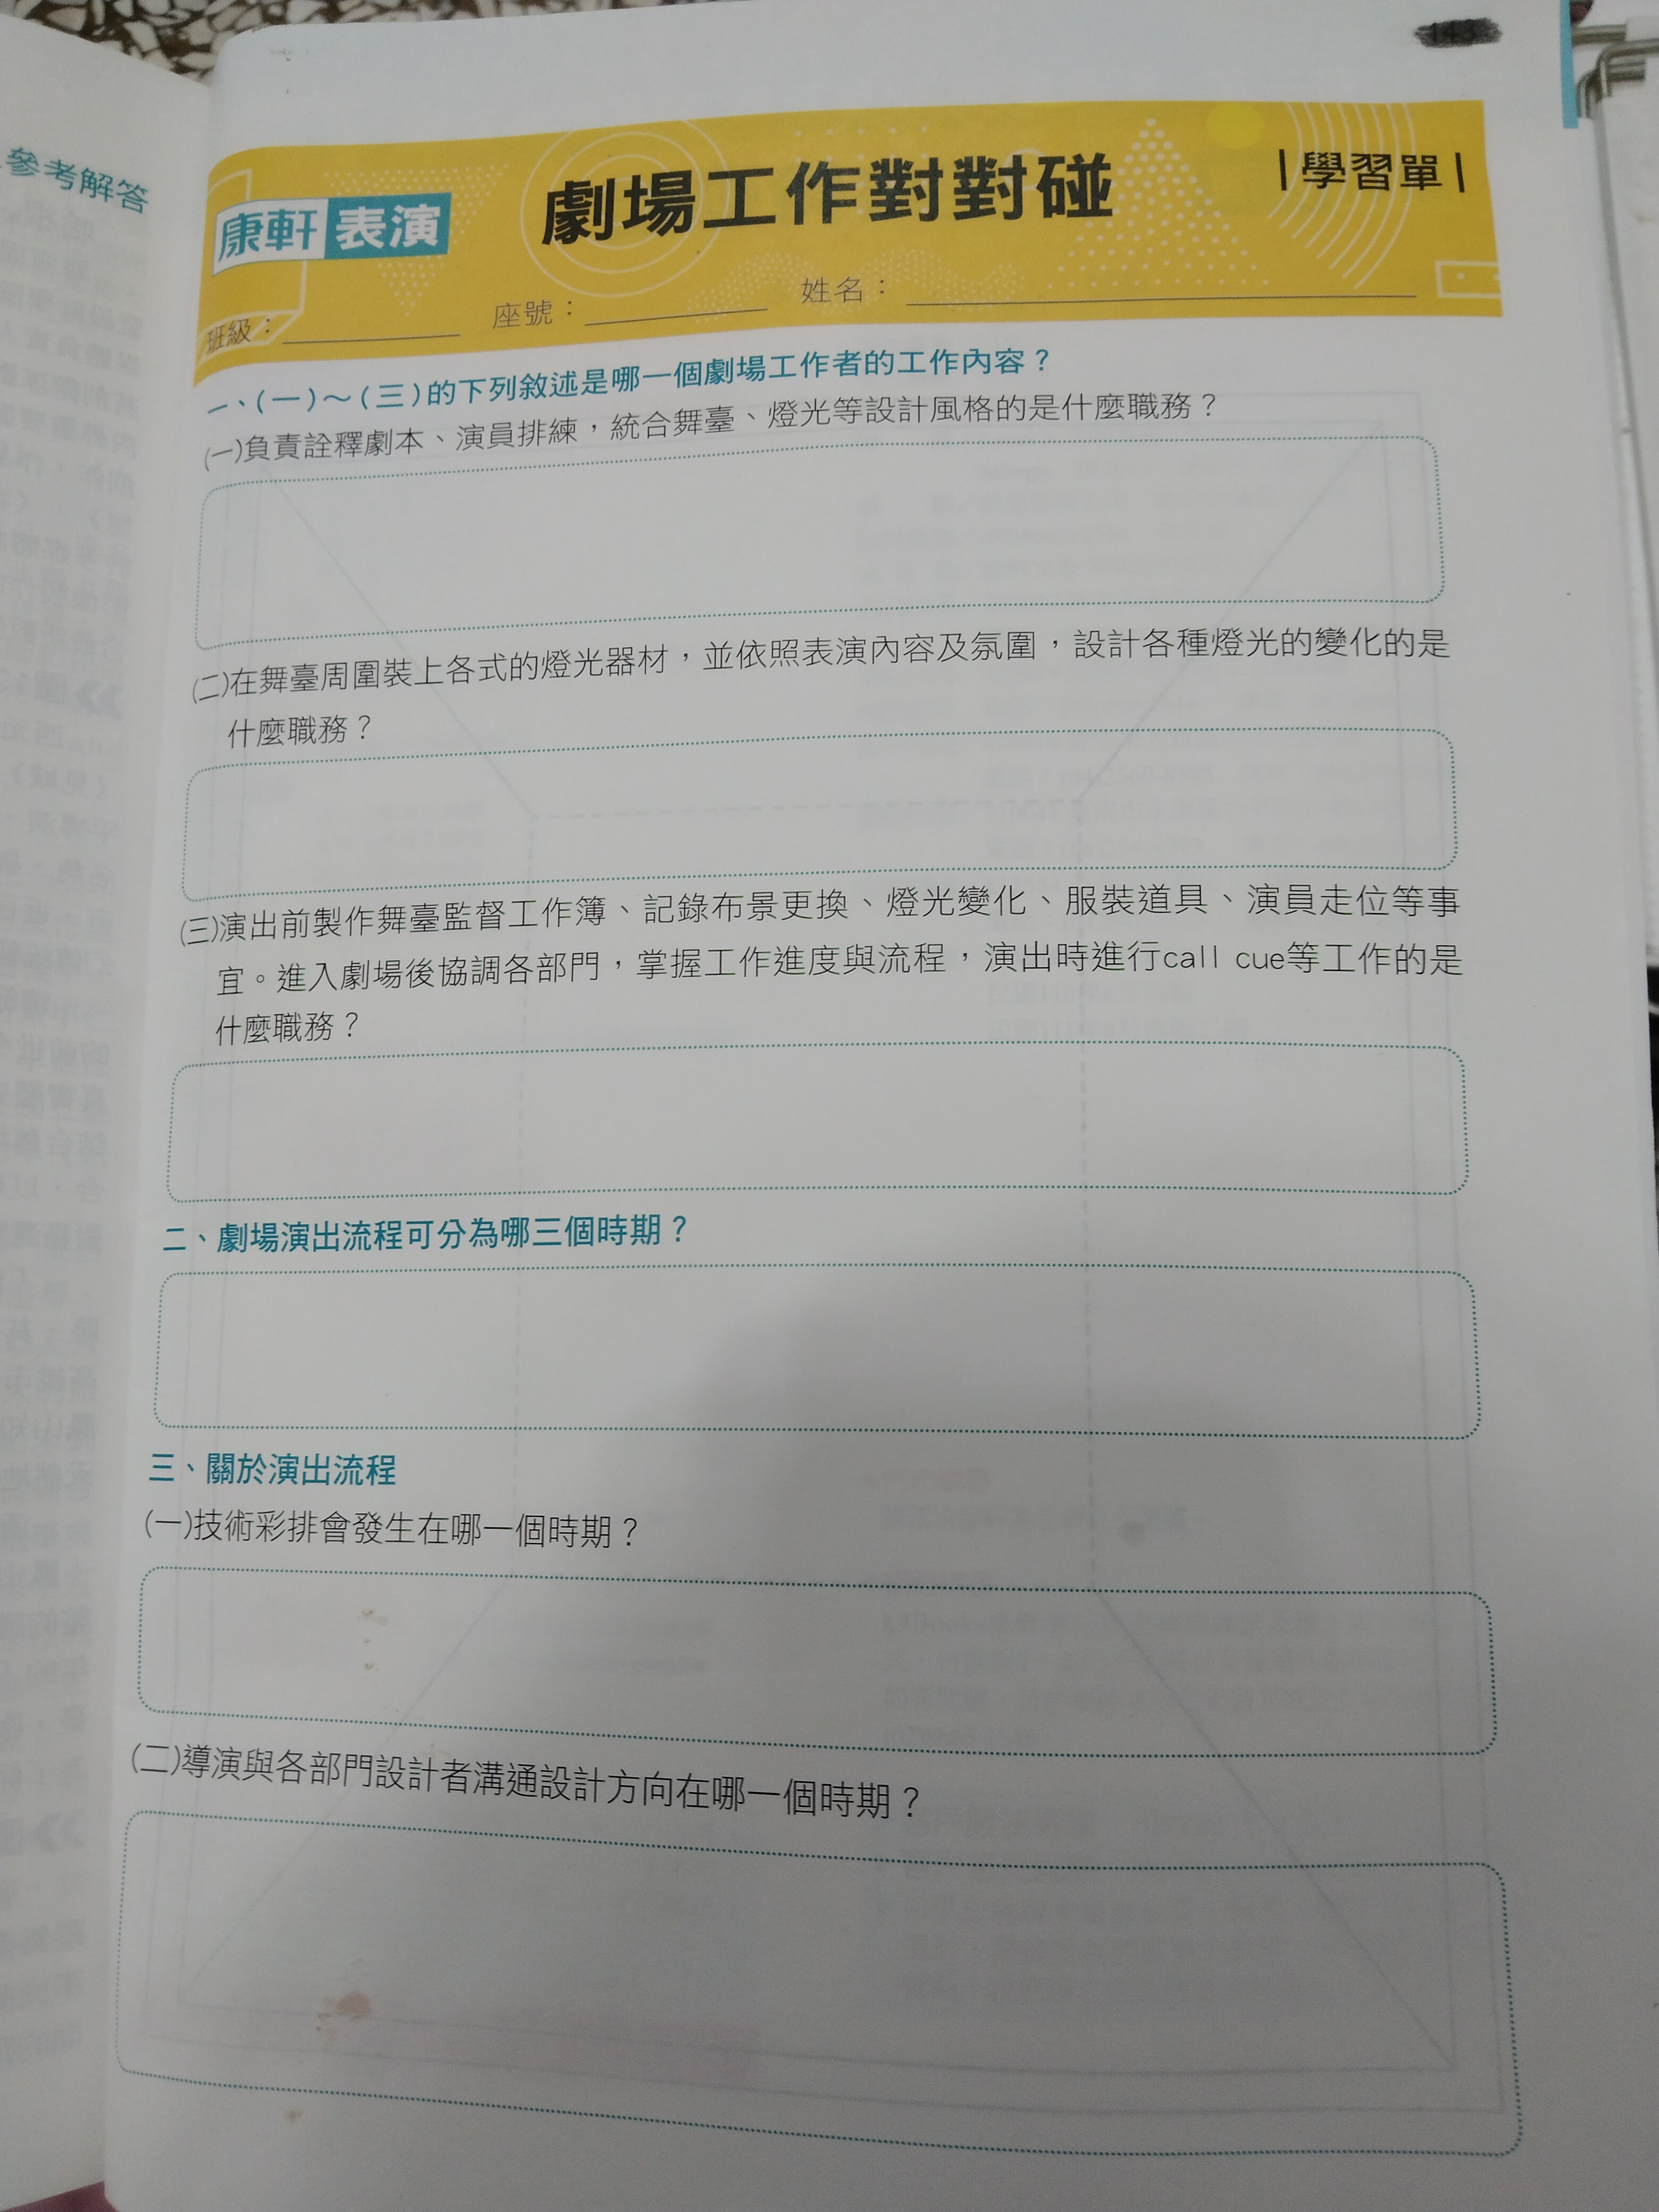 參考解答
康軒 表演
劇場工作對對碰
|學習單|
班級：
座號：
姓名：
一、(一)～(三)的下列敘述是哪一個劇場工作者的工作內容？
(一)負責詮釋劇本、演員排練，統合舞臺、燈光等設計風格的是什麼職務？
(二)在舞臺周圍裝上各式的燈光器材，並依照表演內容及氛圍，設計各種燈光的變化的是
什麼職務？
(三)演出前製作舞臺監督工作簿、記錄布景更換、燈光變化、服裝道具、演員走位等事
宜。進入劇場後協調各部門，掌握工作進度與流程，演出時進行call cue等工作的是
什麼職務？
二、劇場演出流程可分為哪三個時期？
三、關於演出流程
(一)技術彩排會發生在哪一個時期？
(二)導演與各部門設計者溝通設計方向在哪一個時期？